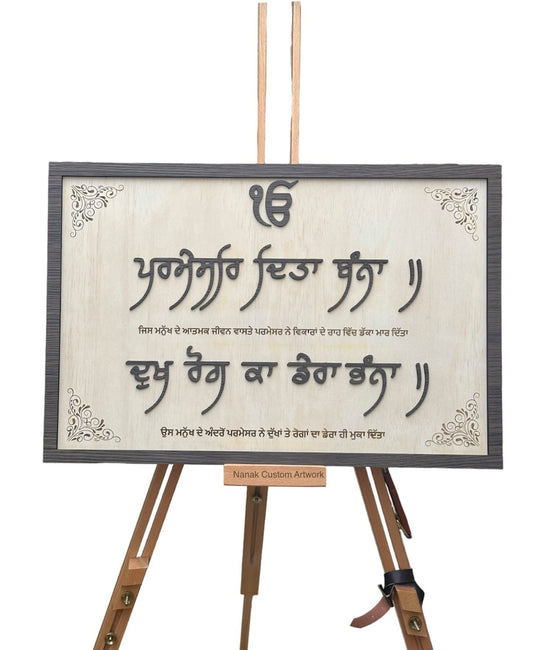 ੴ
ਪਰਮੇਸਰਿ ਦਿਤਾ ਬੰਨਾ ॥
ਜਿਸ ਮਨੁੱਖ ਦੇ ਆਤਮਕ ਜੀਵਨ ਵਾਸਤੇ ਪਰਮੇਸਰ ਨੇ ਵਿਕਾਰਾਂ ਦੇ ਰਾਹ ਵਿੱਚ ਡੱਕਾ ਮਾਰ ਦਿੱਤਾ
ਦੁਖ ਰੋਗ ਕਾ ਡੇਰਾ ਭੰਨਾ ॥
ਉਸ ਮਨੁੱਖ ਦੇ ਅੰਦਰੋਂ ਪਰਮੇਸਰ ਨੇ ਦੁੱਖਾਂ ਤੇ ਰੋਗਾਂ ਦਾ ਡੇਰਾ ਹੀ ਮੁਕਾ ਦਿੱਤਾ
Nanak Custom Artwork